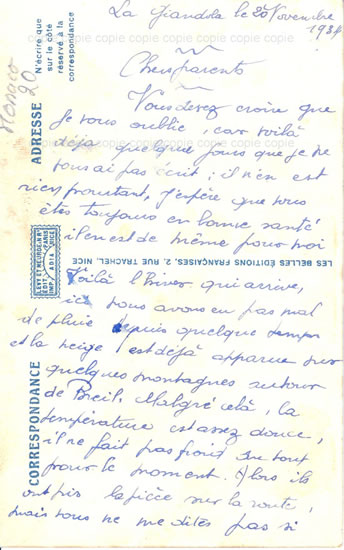 La Giandola le 20 Novembre
1934
Chers parents
Vous devez croire que
je vous oublie, car voilà
déjà quelque jours que je ne
vous ai pas écrit ; il n'en est
rien pourtant, j'espère que vous
êtes toujours en bonne santé
il en est de même pour moi
Voilà l'hiver qui arrive,
ici nous avons eu pas mal
de pluie depuis quelque temps
et la neige est déjà apparue sur
quelques montagnes autour
de Breil. Malgré celà, la
température est assez douce,
il ne fait pas froid du tout
pour le moment. Alors ils
ont pris la pièce sur la route,
mais vous ne me dites pas si
Monaco
20
N'écrire que
sur le côté
réservé à la
correspondance
ADRESSE
LEVY ET NEURDEIN RS
EDIT. PARIS
IMP.
CORRESPONDANCE
LES BELLES ÉDITIONS FRANÇAISES, 2, RUE TRACHEL, NICE
copie copie copie copie copie copie
copie copie copie copie copie copie
copie copie copie copie copie copie